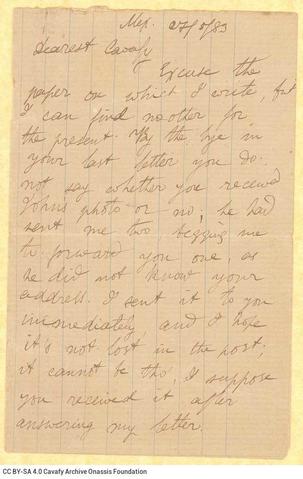 Alex. 27/8/83
Dearest Cavafy
Excuse the
paper on which I write, but
I can find no other for
the present. By the bye in
your last letter you do
not say whether you received
John's photo or no; he had
sent me two begging me
to forward you one, as
he did not know your
address. I sent it to you
immediately, and I hope
it's not lost in the post;
it cannot be tho', I suppose
you received it after
answering my letter.
CC BY-SA 4.0 Cavafy Archive Onassis Foundation